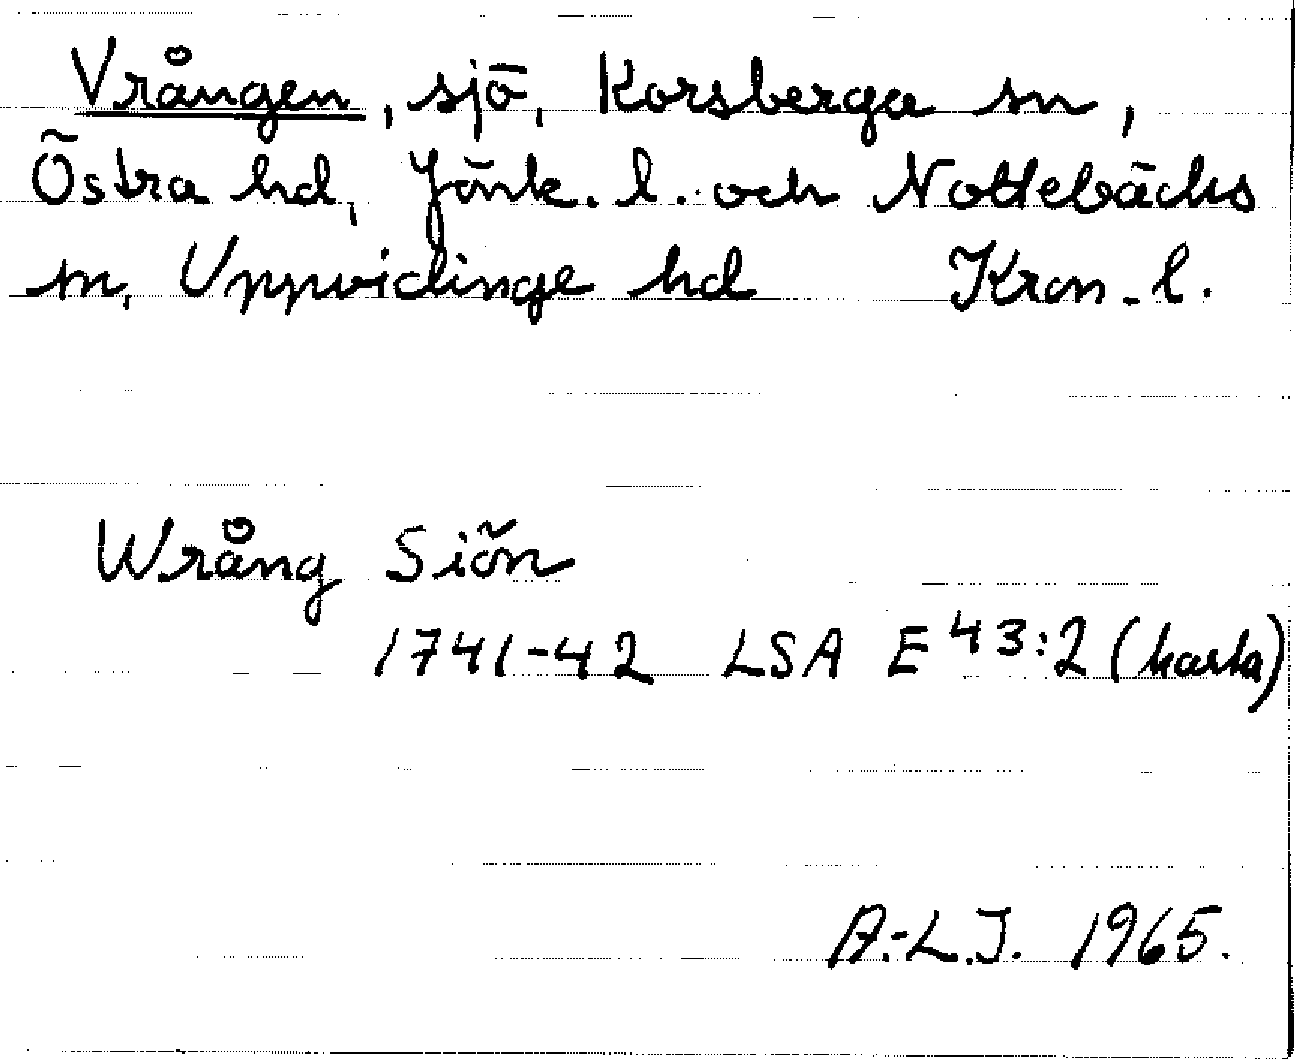 Vrången, sjö, Korsberga sn,
Östra hd, Jönk. l. och Nottebäcks
sn, Uppvidinge hd Kron. l.
Wrång Siön
1741-42 LSA E 43:2 (karta)
A.-L.J. 1965.